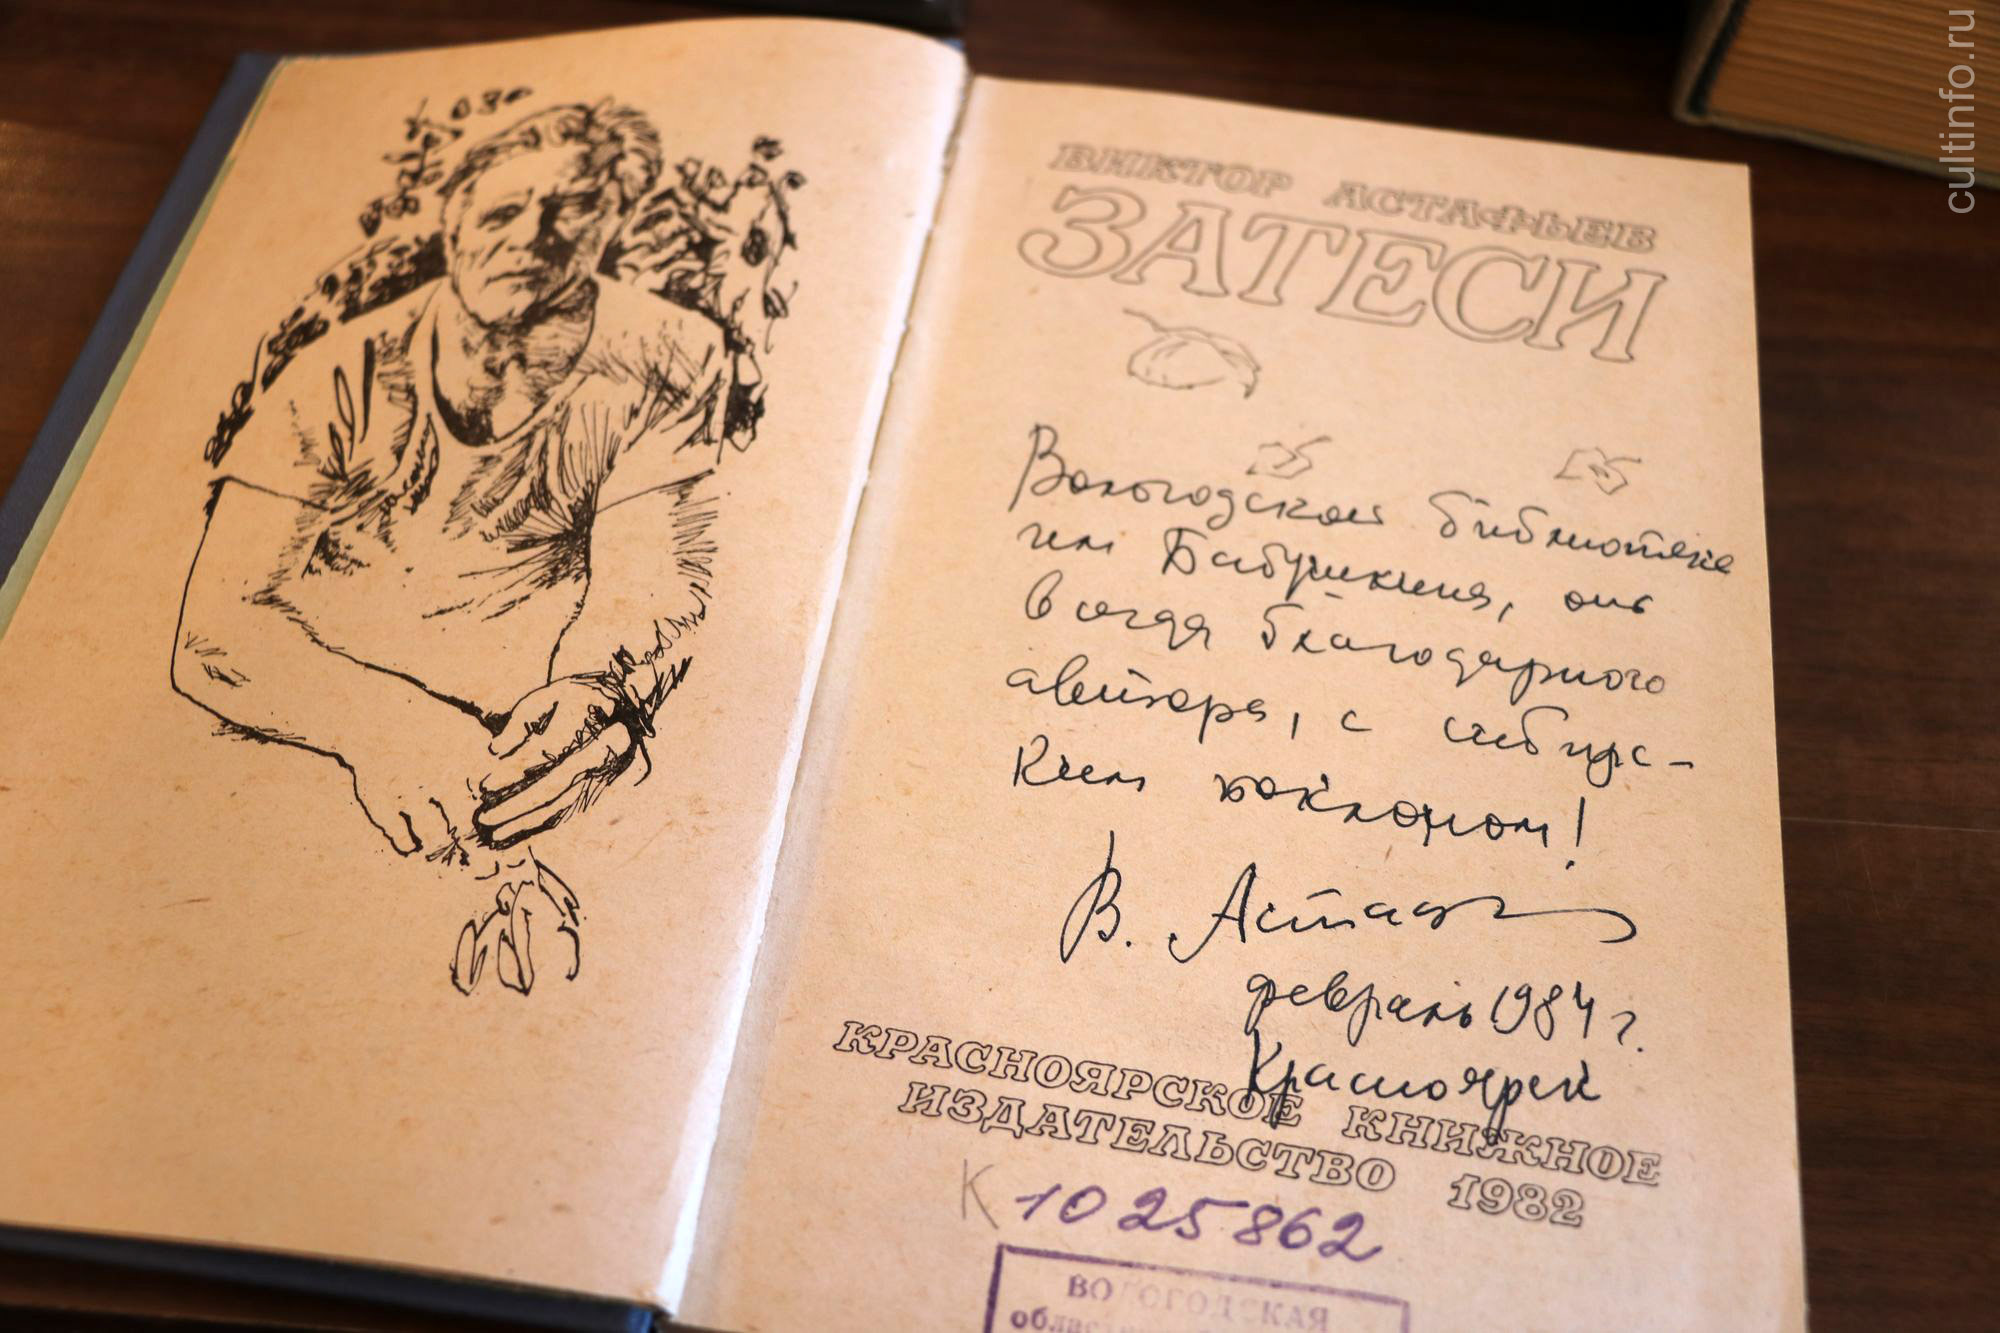 cultinfo.ru
ВИКТОР АСТАФЬЕВ
ЗАТЕСИ
Вологодской библиотеке
им Бабушкина, от
всегда благодарного
автора, с сибирс-
ким поклоном!
В. Астафьев
февраль 1984 г.
Красноярск
КРАСНОЯРСКОЕ КНИЖНОЕ
ИЗДАТЕЛЬСТВО 1982
К 1025862
ВОЛОГОДСКАЯ